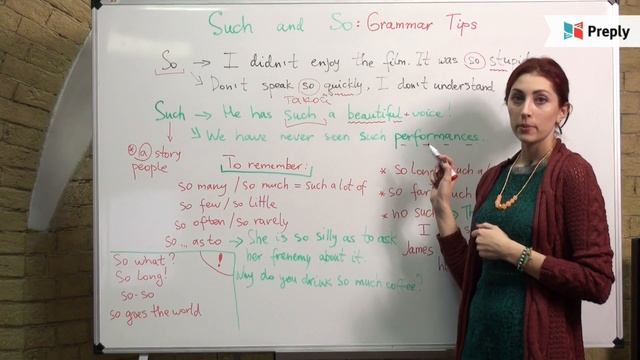 Such and So: Grammar Tips
Preply
So → I didn't enjoy the film. It was so stupid
Don't speak so quickly, I don't understand
такой
Such → He has such a beautiful voice!
We have never seen such performances.
* a story
people
To remember:
so many / so much = such a lot of
so few / so little
so often / so rarely
so ... as to → She is so silly as to ask
her frenemy about it.
Why do you drink so much coffee?
* so long such a
* so far such
* no such → Th
I
James
ha
So what?
So long!
so-so
so goes the world
!